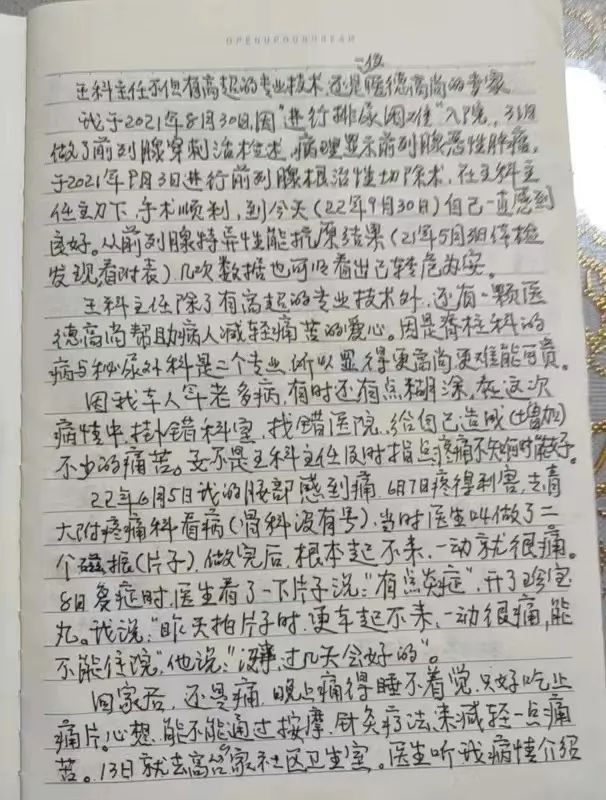 OPENUPYOURBRAIN
一位
王科主任不但有高超的专业技术,还是医德高尚的专家
我于2021年8月30日,因"进行排尿困难"入院,31日
做了前列腺穿刺活检术,病理显示前列腺恶性肿瘤,
于2021年9月3日进行前列腺根治性切除术,在王科主
任主刀下,手术顺利,到今天(22年9月30日)自己一直感到
良好。从前列腺特异性能抗原结果(21年5月3日体检
发现看附表)几次数据也可以看出已转危为安。
王科主任除了有高超的专业技术外,还有一颗医
德高尚帮助病人减轻痛苦的爱心。因是脊柱科的
病与秘尿外科是二个专业,所以显得更高尚更难能可贵。
因我本人年老多病,有时还有点糊涂,在这次
病情中,挂错科室,找错医院,给自己造成(增加)
不少的痛苦。要不是王科主任及时指点疼痛不知何时能好。
22年6月5日我的腰部感到痛,6月7日疼得利害,去青
大附疼痛科看病(骨科没有号),当时医生叫做了二
个磁振(片子),做完后,根本起不来,一动就很痛。
8日复症时,医生看了一下片子说:"有点炎症",开了珍宝
丸。我说:"昨天拍片子时,更本起不来,一动很痛,能
不能住院",他说:"没事,过几天会好的"。
回家后,还是痛,晚上痛得睡不着觉,只好吃止
痛片。心想,能不能通过按摩,针灸疗法,来减轻一点痛
苦。13日就去高 家社区卫生室。医生听我病情介绍